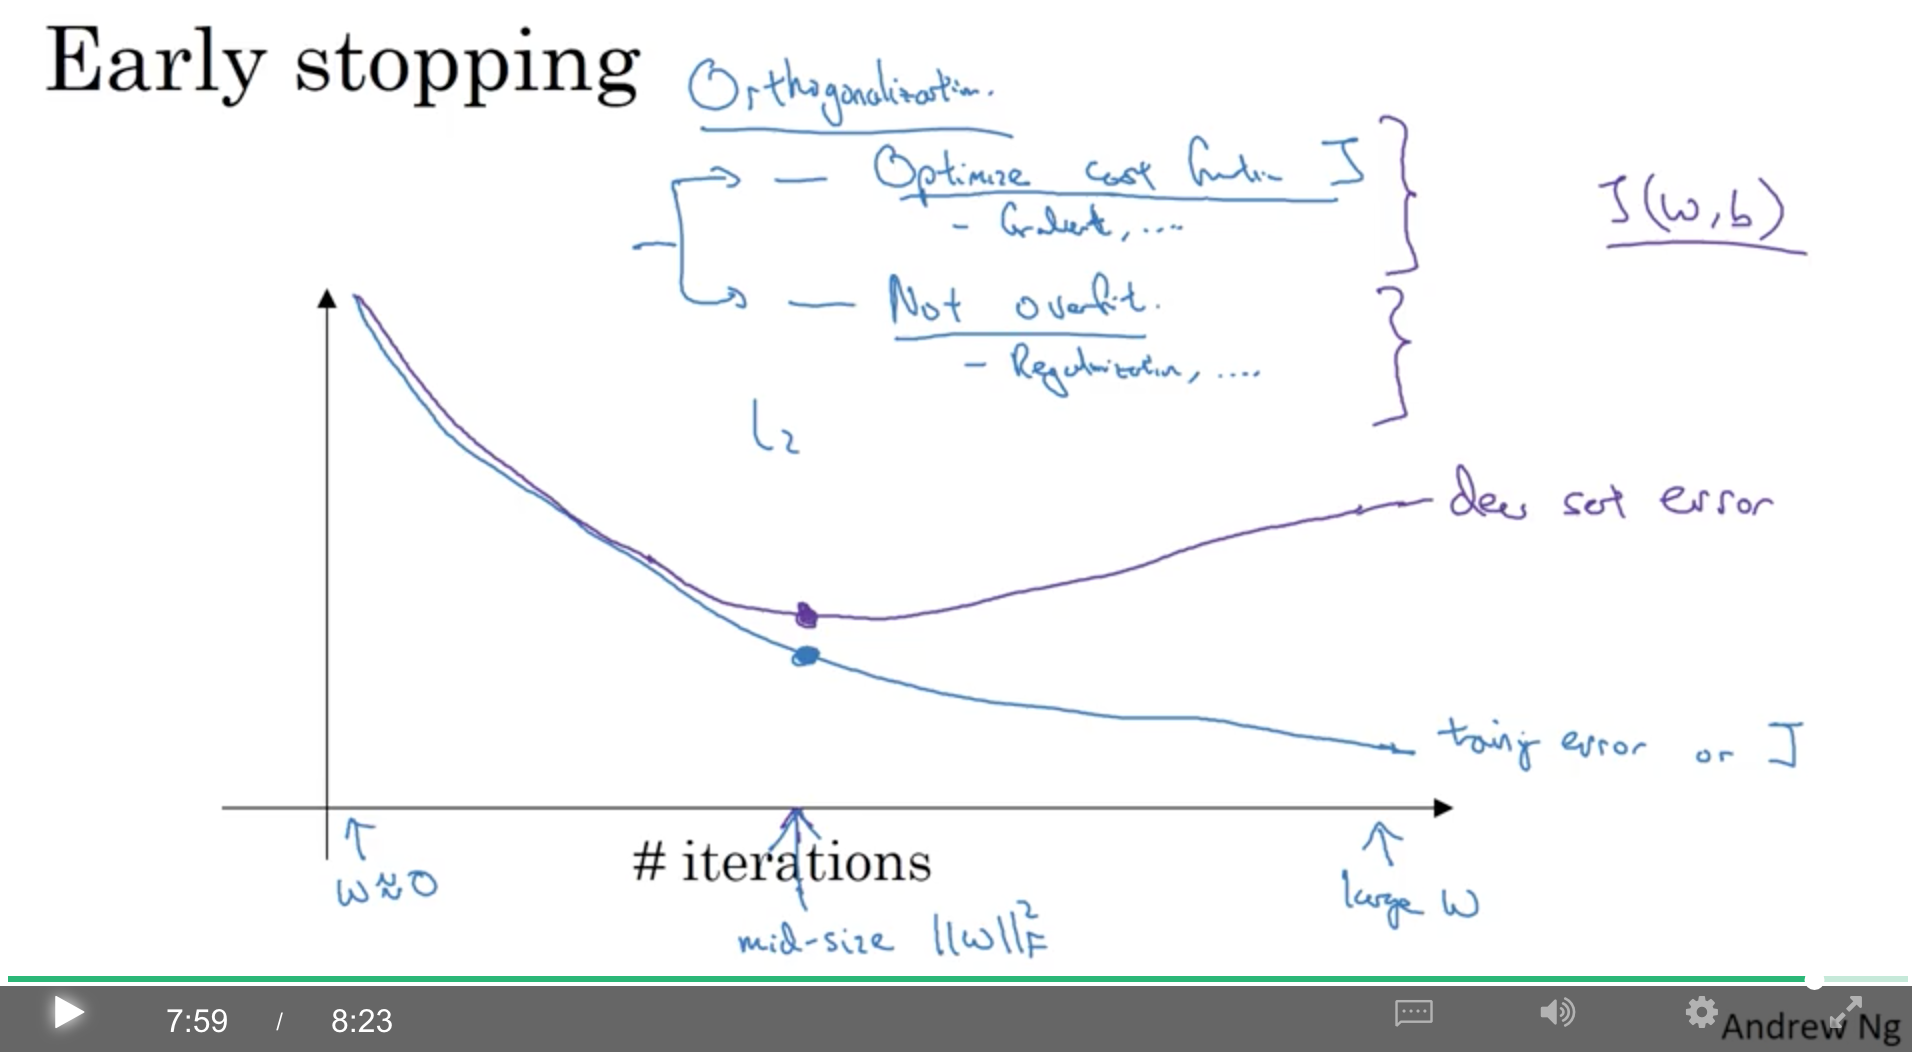 Early stopping
Orthogonalization.
— Optimize cost function J
- Gradient, ....
J(w,b)
— Not overfit.
- Regularization, ....
L2
dev set error
training error or J
w≈0
# iterations
large w
mid-size ||w||²F
7:59 / 8:23
Andrew Ng